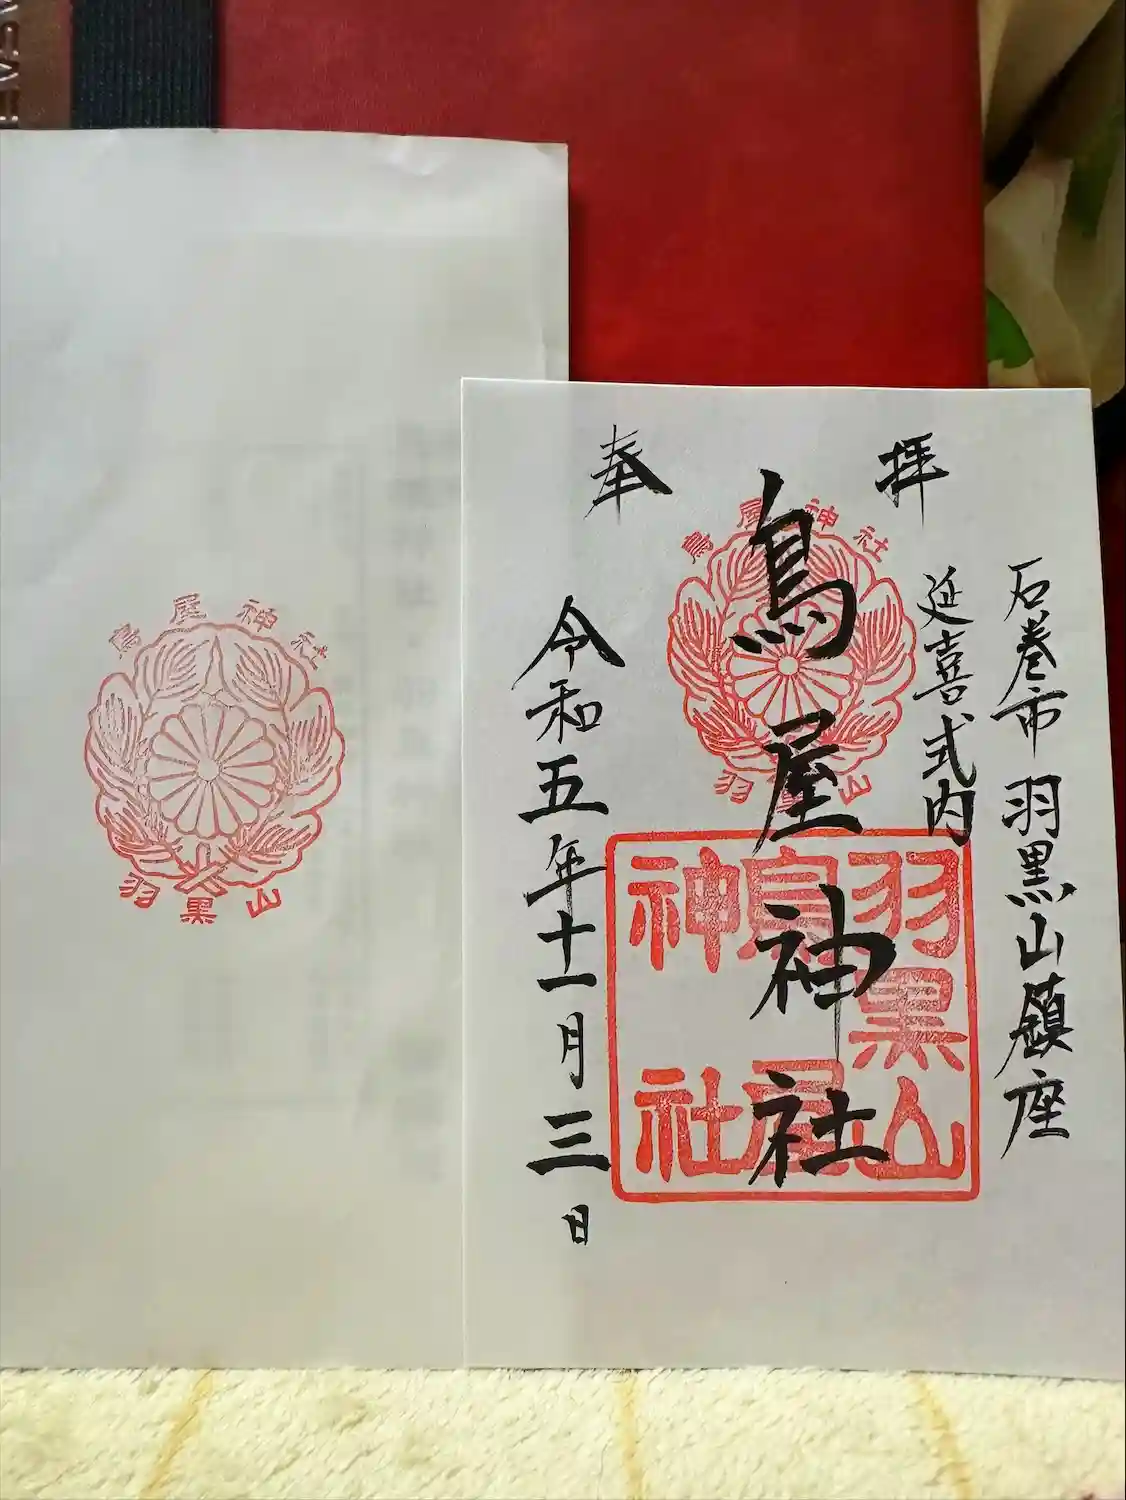 奉拝
石巻市羽黒山鎮座
延喜式内
鳥屋神社
令和五年十一月三日
鳥屋神社
羽黒山
羽黒山
鳥屋
神社
鳥屋神社
羽黒山